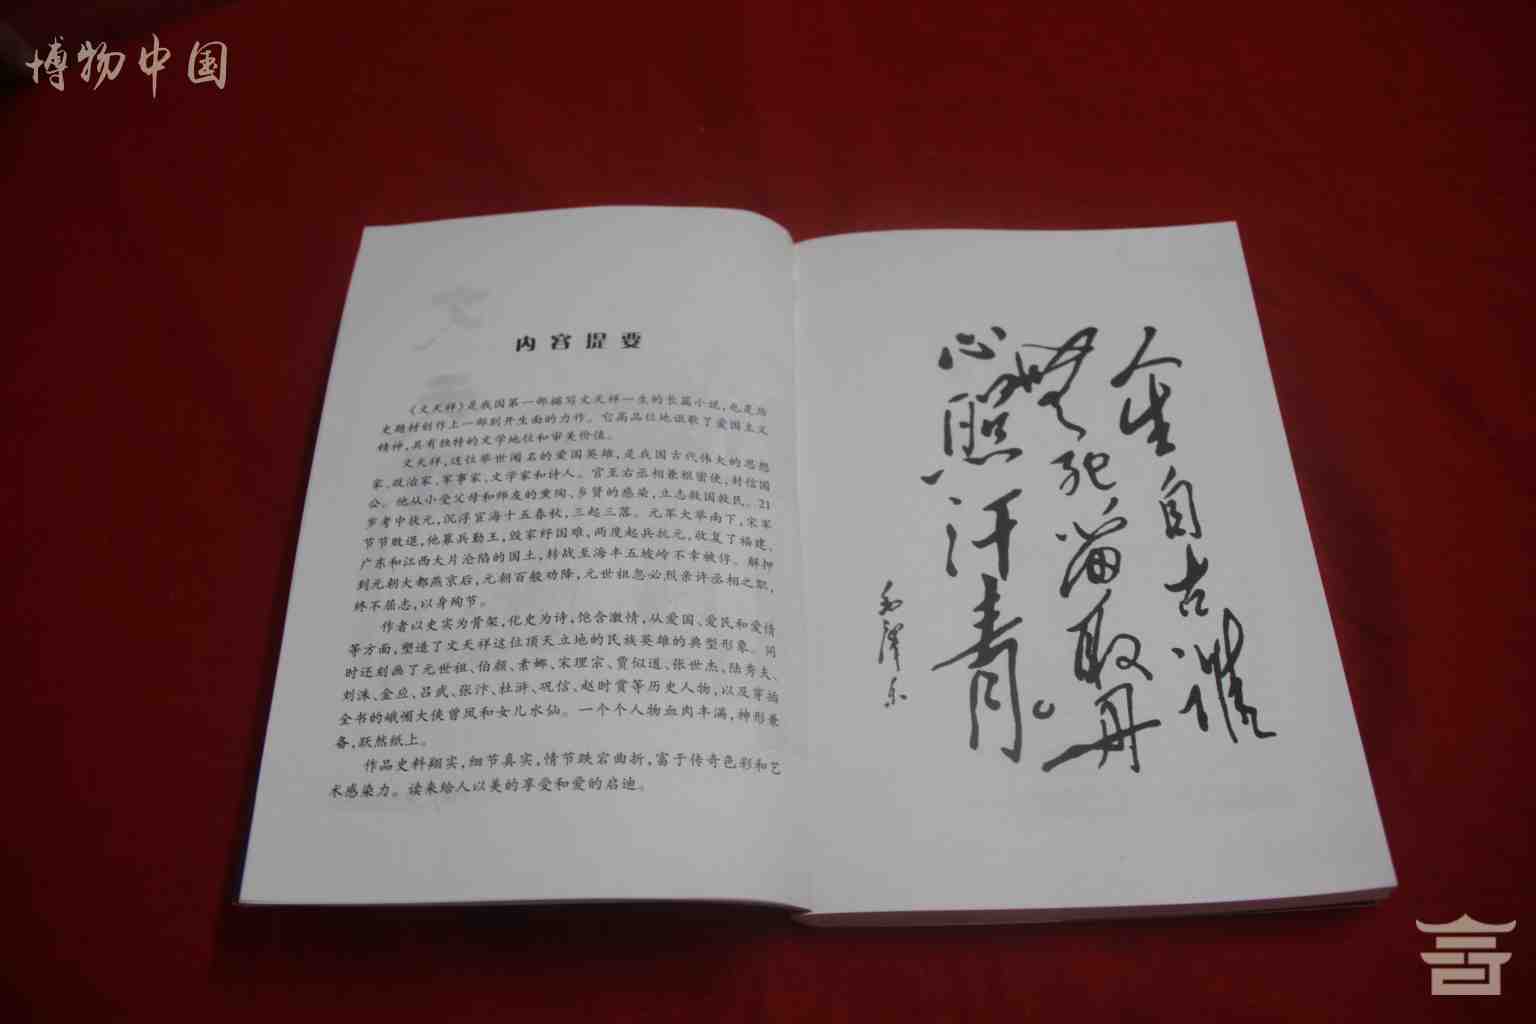 博物中国
内容提要
《文天祥》是我国第一部描写文天祥一生的长篇小说,也是历
史题材创作上一部别开生面的力作。它高品位地讴歌了爱国主义
精神,具有独特的文学地位和审美价值。
文天祥,这位举世闻名的爱国英雄,是我国古代伟大的思想
家、政治家、军事家、文学家和诗人。官至右丞相兼枢密使,封信国
公。他从小受父母和师友的熏陶、乡贤的感染,立志报国救民。21
岁考中状元,沉浮宦海十五春秋,三起三落。元军大举南下,宋军
节节败退,他募兵勤王,毁家纾国难,两度起兵抗元,收复了福建、
广东和江西大片沦陷的国土,转战至海丰五坡岭不幸被俘。解押
到元朝大都燕京后,元朝百般劝降,元世祖忽必烈亲许丞相之职,
终不屈志,以身殉节。
作者以史实为骨架,化史为诗,饱含激情,从爱国、爱民和爱情
等方面,塑造了文天祥这位顶天立地的民族英雄的典型形象。同
时还刻画了元世祖、伯颜、素娜、宋理宗、贾似道、张世杰、陆秀夫、
刘洙、金应、吕武、张汴、杜浒、巩信、赵时赏等历史人物,以及穿插
全书的峨嵋大侠曾凤和女儿水仙。一个个人物血肉丰满,神形兼
备,跃然纸上。
作品史料翔实,细节真实,情节跌宕曲折,富于传奇色彩和艺
术感染力。读来给人以美的享受和爱的启迪。
人生自古谁
无死留取丹
心照汗青。
毛泽东